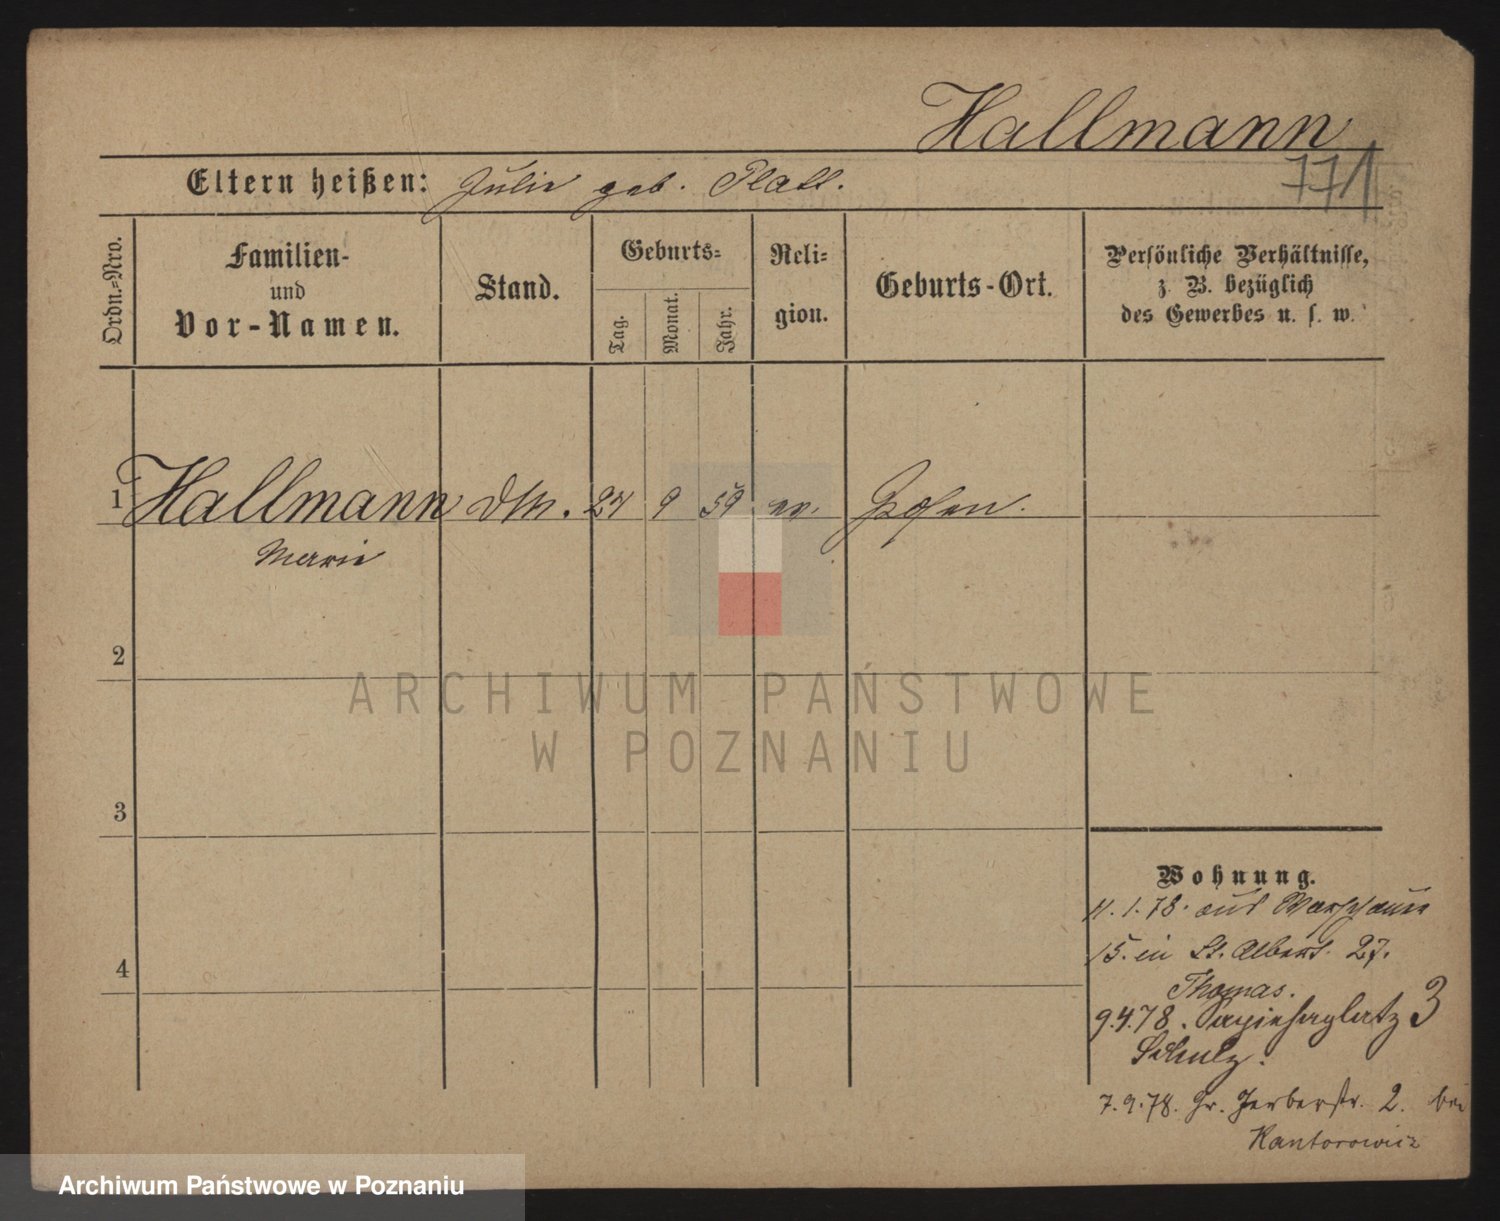 Hallmann
771
Eltern heißen: Julie geb. Platt.
Ordn.=Nro.
Familien-
und
Vor-Namen.
Stand.
Geburts=
Tag.
Monat.
Jahr.
Reli=
gion.
Geburts-Ort.
Persönliche Verhältnisse,
z. B. bezüglich
des Gewerbes u. s. w.
1 Hallmann 9 59 ev. Posen.
Marie
2
ARCHIWUM PAŃSTWOWE
W POZNANIU
3
Wohnung.
11.1.78. aus Warschauer
15. in St. Adalbert. 27.
4
Thomas.
9.4.78. Sapiehaplatz 3
Schulz.
7.9.78. Gr. Gerberstr. 2. bei
Kantorowicz
Archiwum Państwowe w Poznaniu